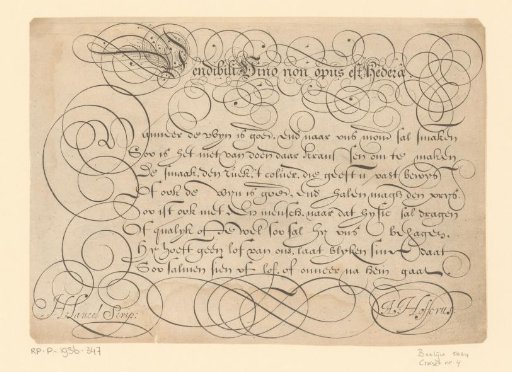 Vendibili Vino non opus est hedera
Wanneer de wyn is goet, end naar ons mond sal smaken
Soo is het niet van doen daar krans sen om te maken
De smaak, den ruck, t coluer, die geeft u vast bewys
Of ook de wyn is goet, end halen magh den prys.
Soo ist ook met den mensch, naar dat hy sie sal dragen
Of qualyk of de wel soo sal hy ons behagen.
Hy hoeft geen lof van ons, laat blyken sine daat
Soo salmen sien of lof, of oneer na hem gaat
H. Lancel Scrip:
RP-P-1936-347